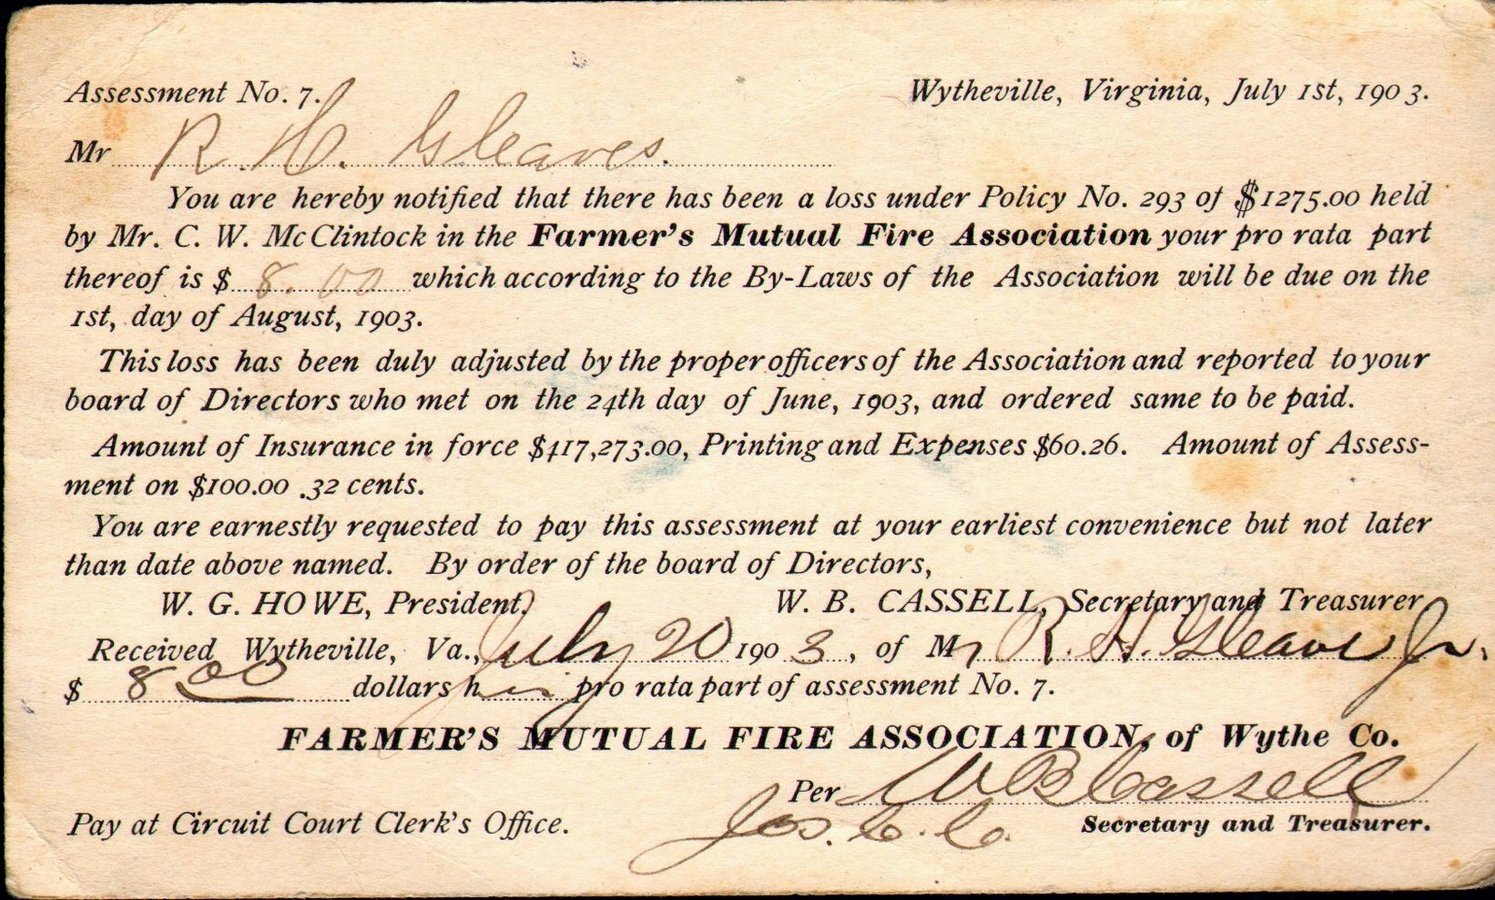 Assessment No. 7. Wytheville, Virginia, July 1st, 1903.
Mr R. H. Gleaves.
You are hereby notified that there has been a loss under Policy No. 293 of $1275.00 held
by Mr. C. W. McClintock in the Farmer's Mutual Fire Association your pro rata part
thereof is $ 8.00 which according to the By-Laws of the Association will be due on the
1st, day of August, 1903.
This loss has been duly adjusted by the proper officers of the Association and reported to your
board of Directors who met on the 24th day of June, 1903, and ordered same to be paid.
Amount of Insurance in force $417,273.00, Printing and Expenses $60.26. Amount of Assess-
ment on $100.00 .32 cents.
You are earnestly requested to pay this assessment at your earliest convenience but not later
than date above named. By order of the board of Directors,
W. G. HOWE, President, W. B. CASSELL, Secretary and Treasurer
Received Wytheville, Va., July 20 1903, of Mr R. H. Gleaves Jr.
$ 8.00 dollars his pro rata part of assessment No. 7.
FARMER'S MUTUAL FIRE ASSOCIATION, of Wythe Co.
Per W B Cassell
Pay at Circuit Court Clerk's Office. Secretary and Treasurer.